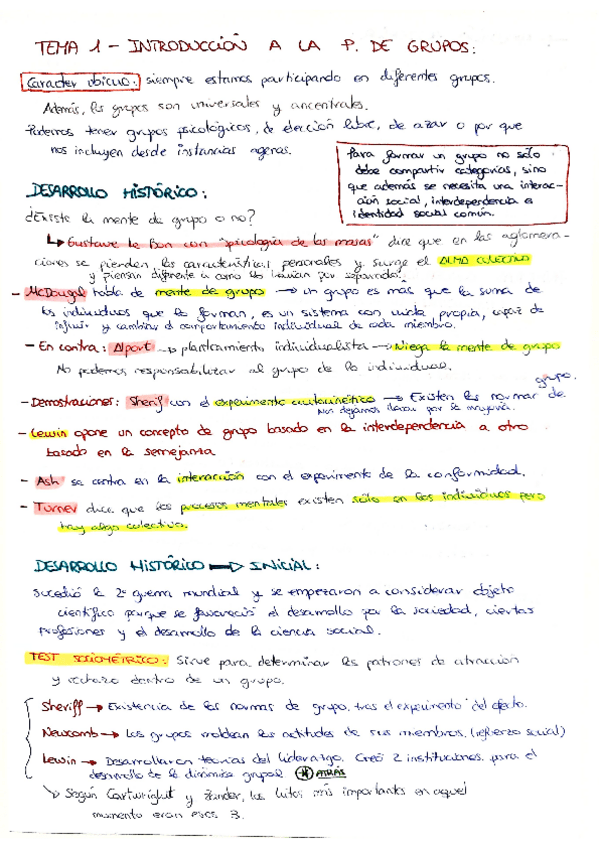 TEMA 1 - INTRODUCCIÓN A LA P. DE GRUPOS:
Caracter obicuo: siempre estamos participando en diferentes grupos.
Además, los grupos son universales y ancentrales.
Podemos tener grupos psicológicos, de elección libre, de azar o por que
nos incluyen desde instancias agenas.
Para formar un grupo no solo
debe compartir categorías, sino
que además se necesita una interac-
ción social, interdependencia e
identidad social común.
DESARROLLO HISTÓRICO:
¿Existe la mente de grupo o no?
↳ Gustave le Bon con "psicología de las masas" dice que en las aglomera-
ciones se pierden las características personales y surge el ALMA COLECTIVO
y piensan diferente a como lo harían por separado.
- McDougal habla de mente de grupo → un grupo es más que la suma de
los individuos que lo forman, es un sistema con vida propia, capaz de
influir y cambiar el comportamiento individual de cada miembro.
- En contra: Alport → planteamiento individualista → Niega la mente de grupo
No podemos responsabilizar al grupo de lo individual.
- Demostraciones: Sherif con el experimento autocinético → Existen las normas de grupo.
Nos dejamos llevar por la mayoría.
- Lewin opone un concepto de grupo basado en la interdependencia a otro
basado en la semejanza
- Ash se centra en la interacción con el experimento de la conformidad.
- Turner dice que los procesos mentales existen sólo en los individuos pero
hay algo colectivo.
DESARROLLO HISTÓRICO → INICIAL:
Sucedió la 2ª guerra mundial y se empezaron a considerar objeto
científico porque se favoreció el desarrollo por la sociedad, ciertas
profesiones y el desarrollo de la ciencia social.
TEST SOCIOMÉTRICO: Sirve para determinar los patrones de atracción
y rechazo dentro de un grupo.
Sheriff → Existencia de las normas de grupo, tras el experimento del efecto.
Newcomb → Los grupos moldean las actitudes de sus miembros. (refuerzo social)
Lewin → Desarrollaron teorías del liderazgo. Creó 2 instituciones para el
desarrollo de la dinámica grupal (*) ATRÁS
↳ Según Cartwright y Zander, los hitos más importantes en aquel
momento eran esos 3.